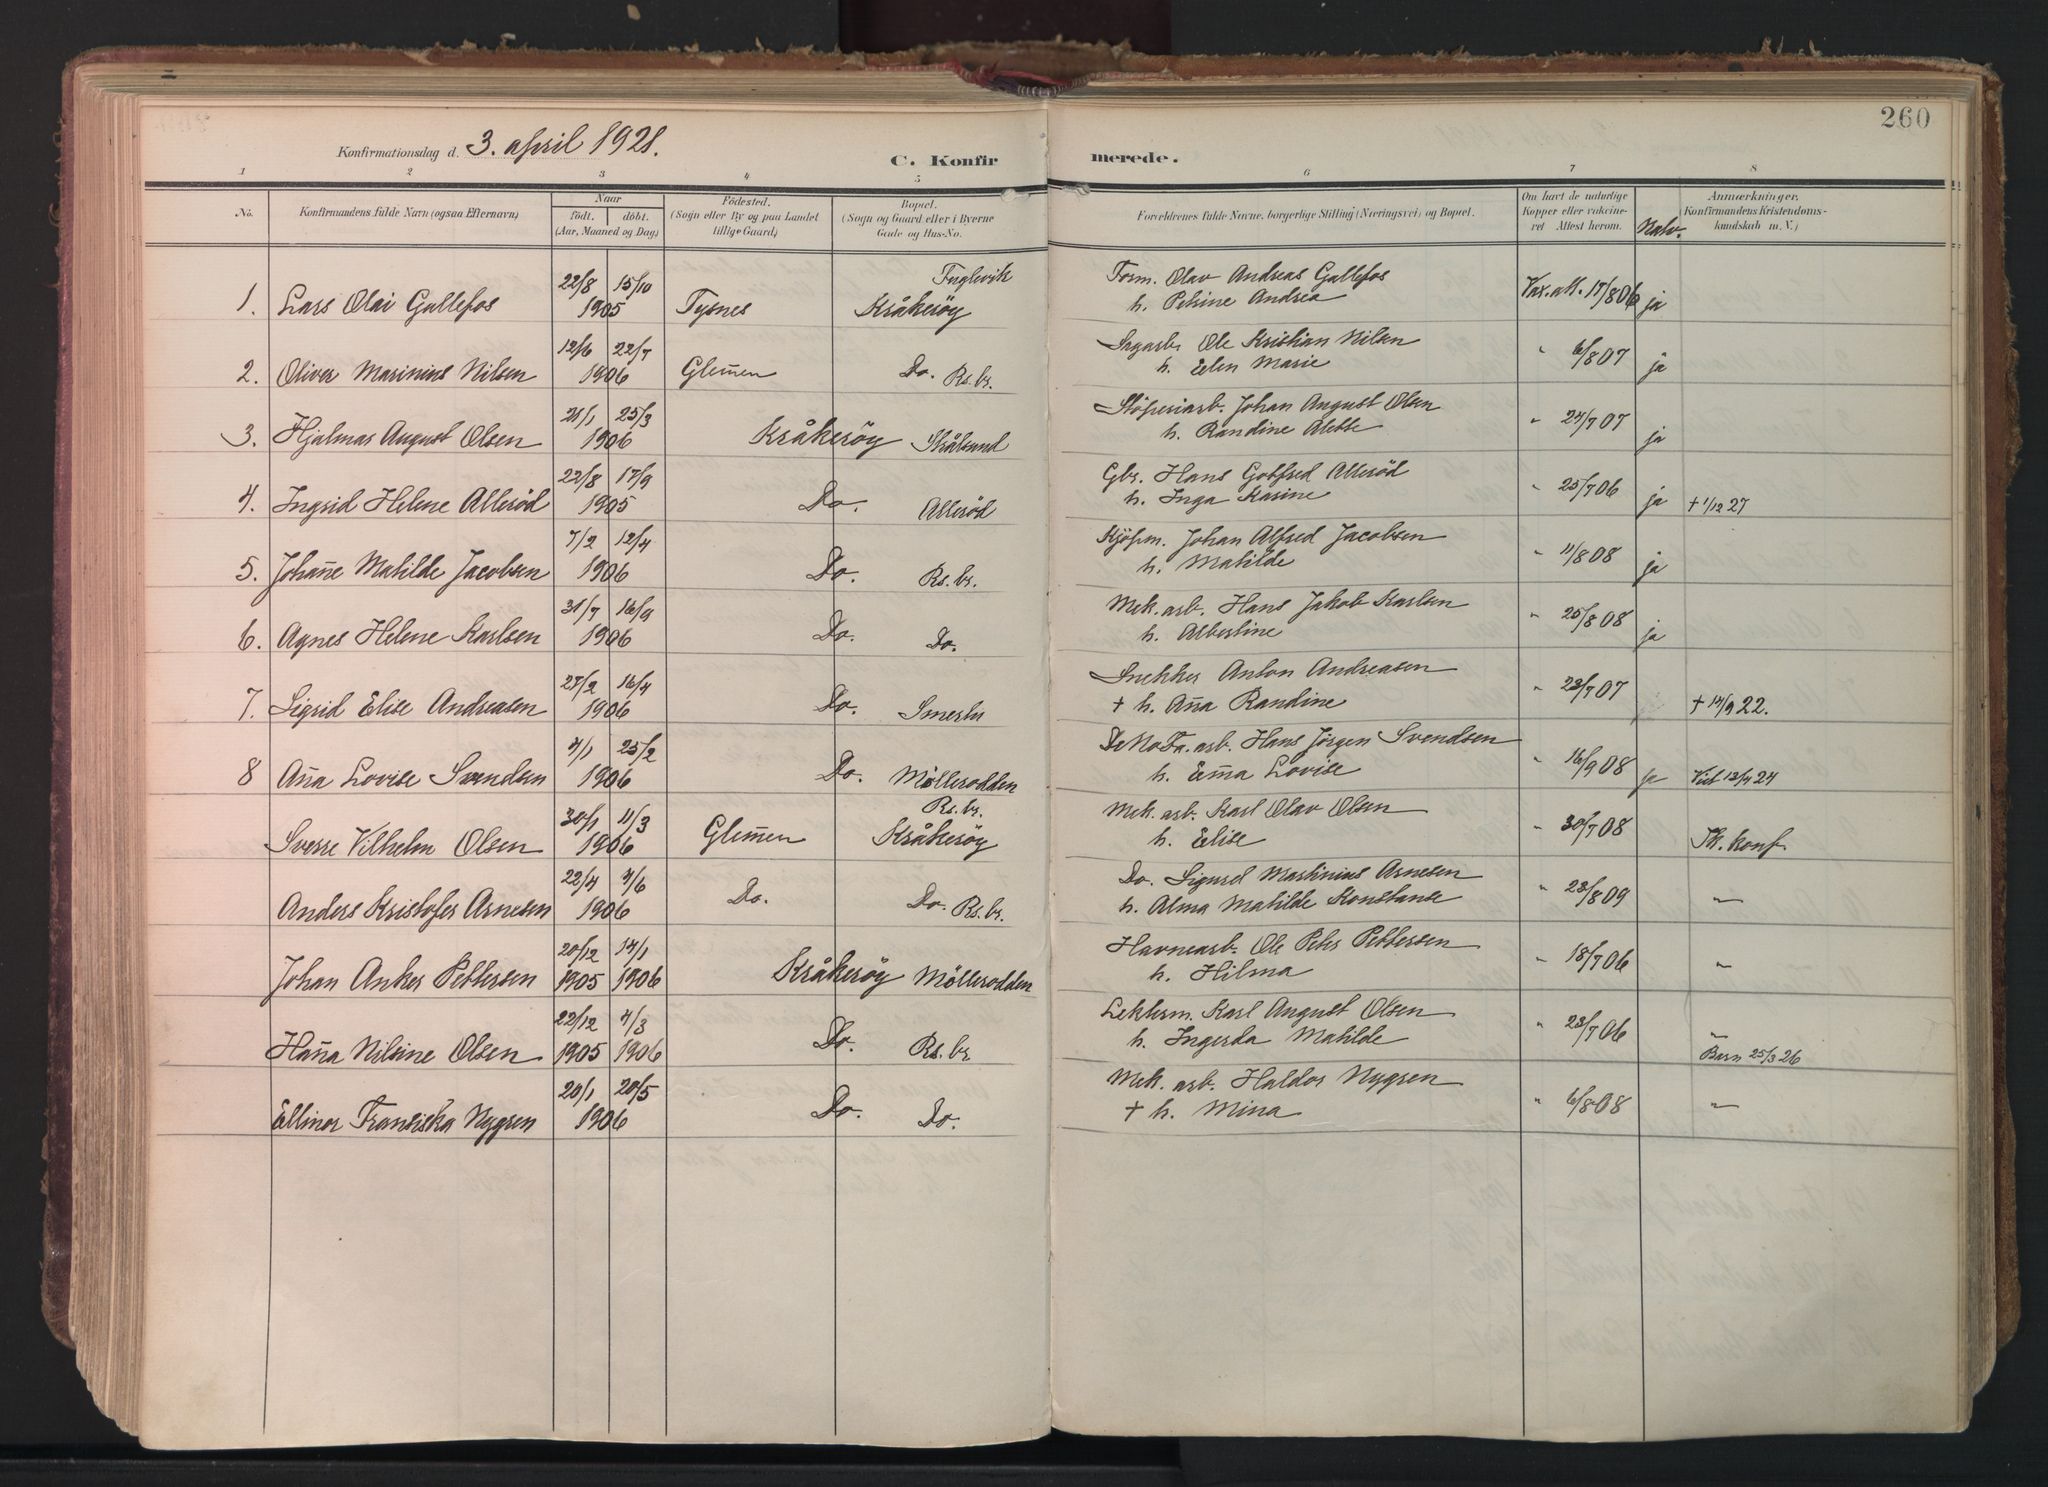 260
Konfirmationsdag d. 3. april 1921. C. Konfirmerede.
1 2 3 4 5 6 7 8
No. Konfirmandens fulde Navn (ogsaa Efternavn) Naar födt. döbt. (Aar, Maaned og Dag) Födested. (Sogn eller By og paa Landet tillige Gaard) Bopæl. (Sogn og Gaard eller i Byerne Gade og Hus-No. Forældrenes fulde Navne, borgerlige Stilling (Næringsvei) og Bopæl. Om havt de naturlige Kopper eller vakcineret Attest herom. Natv. Anmærkninger. Konfirmandens Kristendomskundskab m. V.)
1. Lars Olai Gallefos 22/8 15/10 1905 Tysnes Fuglevik Kråkeröy Form. Olav Andreas Gallefos h. Petrine Andrea Vax.att. 17/8 06 ja
2. Oliver Marinius Nilsen 12/6 22/7 1906 Glem̄en Do. Rs.br. Ole Kristian Nilsen h. Elen Marie " 6/8 07 ja
3. Hjalmar August Olsen 21/1 25/3 1906 Kråkeröy Stålsund Støperiarb. Johan August Olsen h. Randine Alette " 24/7 07 ja
4. Ingrid Helene Alleröd 22/8 17/9 1905 Do. Alleröd Gbr. Hans Gotfred Alleröd h. Inga Karine " 25/7 06 ja † 1/12 27
5. Johan̄e Matilde Jacobsen 7/2 12/4 1906 Do. Rs.br. Kjöpm. Johan Alfred Jacobsen h. Matilde " 11/8 08 ja
6. Agnes Helene Karlsen 31/7 16/9 1906 Do. Do. Mek. arb. Hans Jakob Karlsen h. Albertine " 25/8 08 ja
7. Sigrid Elise Andreasen 27/2 16/4 1906 Do. Smertu Snekker Anton Andreasen † h. An̄a Randine " 23/7 07 † 14/9 22.
8 An̄a Lovise Svendsen 4/1 25/2 1906 Do. Möllerodden DeNoFa. arb. Hans Jörgen Svendsen h. Em̄a Lovise " 16/9 08 ja Viet 12/4 24
Sverre Vilhelm Olsen 30/1 11/3 1906 Glem̄en Rs.br. Kråkeröy Mek. arb. Karl Olav Olsen h. Elise " 30/7 08 Tk. konf.
Anders Kristofer Arnesen 22/4 4/6 1906 Do. Do. Rs.br. Do. Sigurd Martinius Arnesen h. Alma Matilde Konstanse " 23/8 09 "
Johan Anker Pettersen 20/12 1905 14/1 1906 Kråkeröy Möllerodden Havnearb. Ole Peter Pettersen h. Hilma " 18/7 06 "
Han̄a Nilsine Olsen 22/12 1905 4/3 1906 Do. Rs. br Lekterm. Karl August Olsen h. Ingerda Matilde " 23/7 06 " Barn 25/3 26
Ellinor Fransiska Nygren 20/1 20/5 1906 Do. Do. Mek. arb. Haldor Nygren † h. Mina " 6/8 08 "